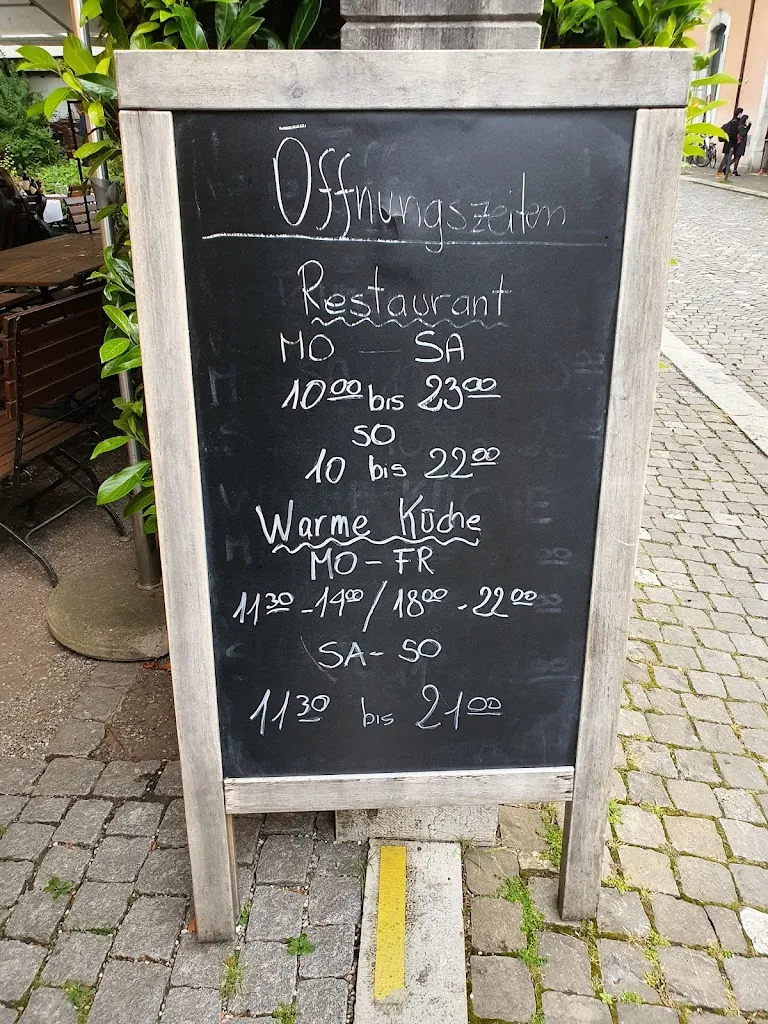 Öffnungszeiten
Restaurant
MO — SA
10⁰⁰ bis 23⁰⁰
SO
10 bis 22⁰⁰
Warme Küche
MO - FR
11³⁰ - 14⁰⁰ / 18⁰⁰ - 22⁰⁰
SA - SO
11³⁰ bis 21⁰⁰